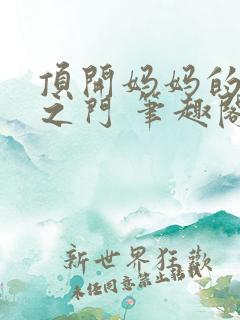 頂開妈妈的
之门 筆趣阁
新世界狂歡
未经同意禁止转载